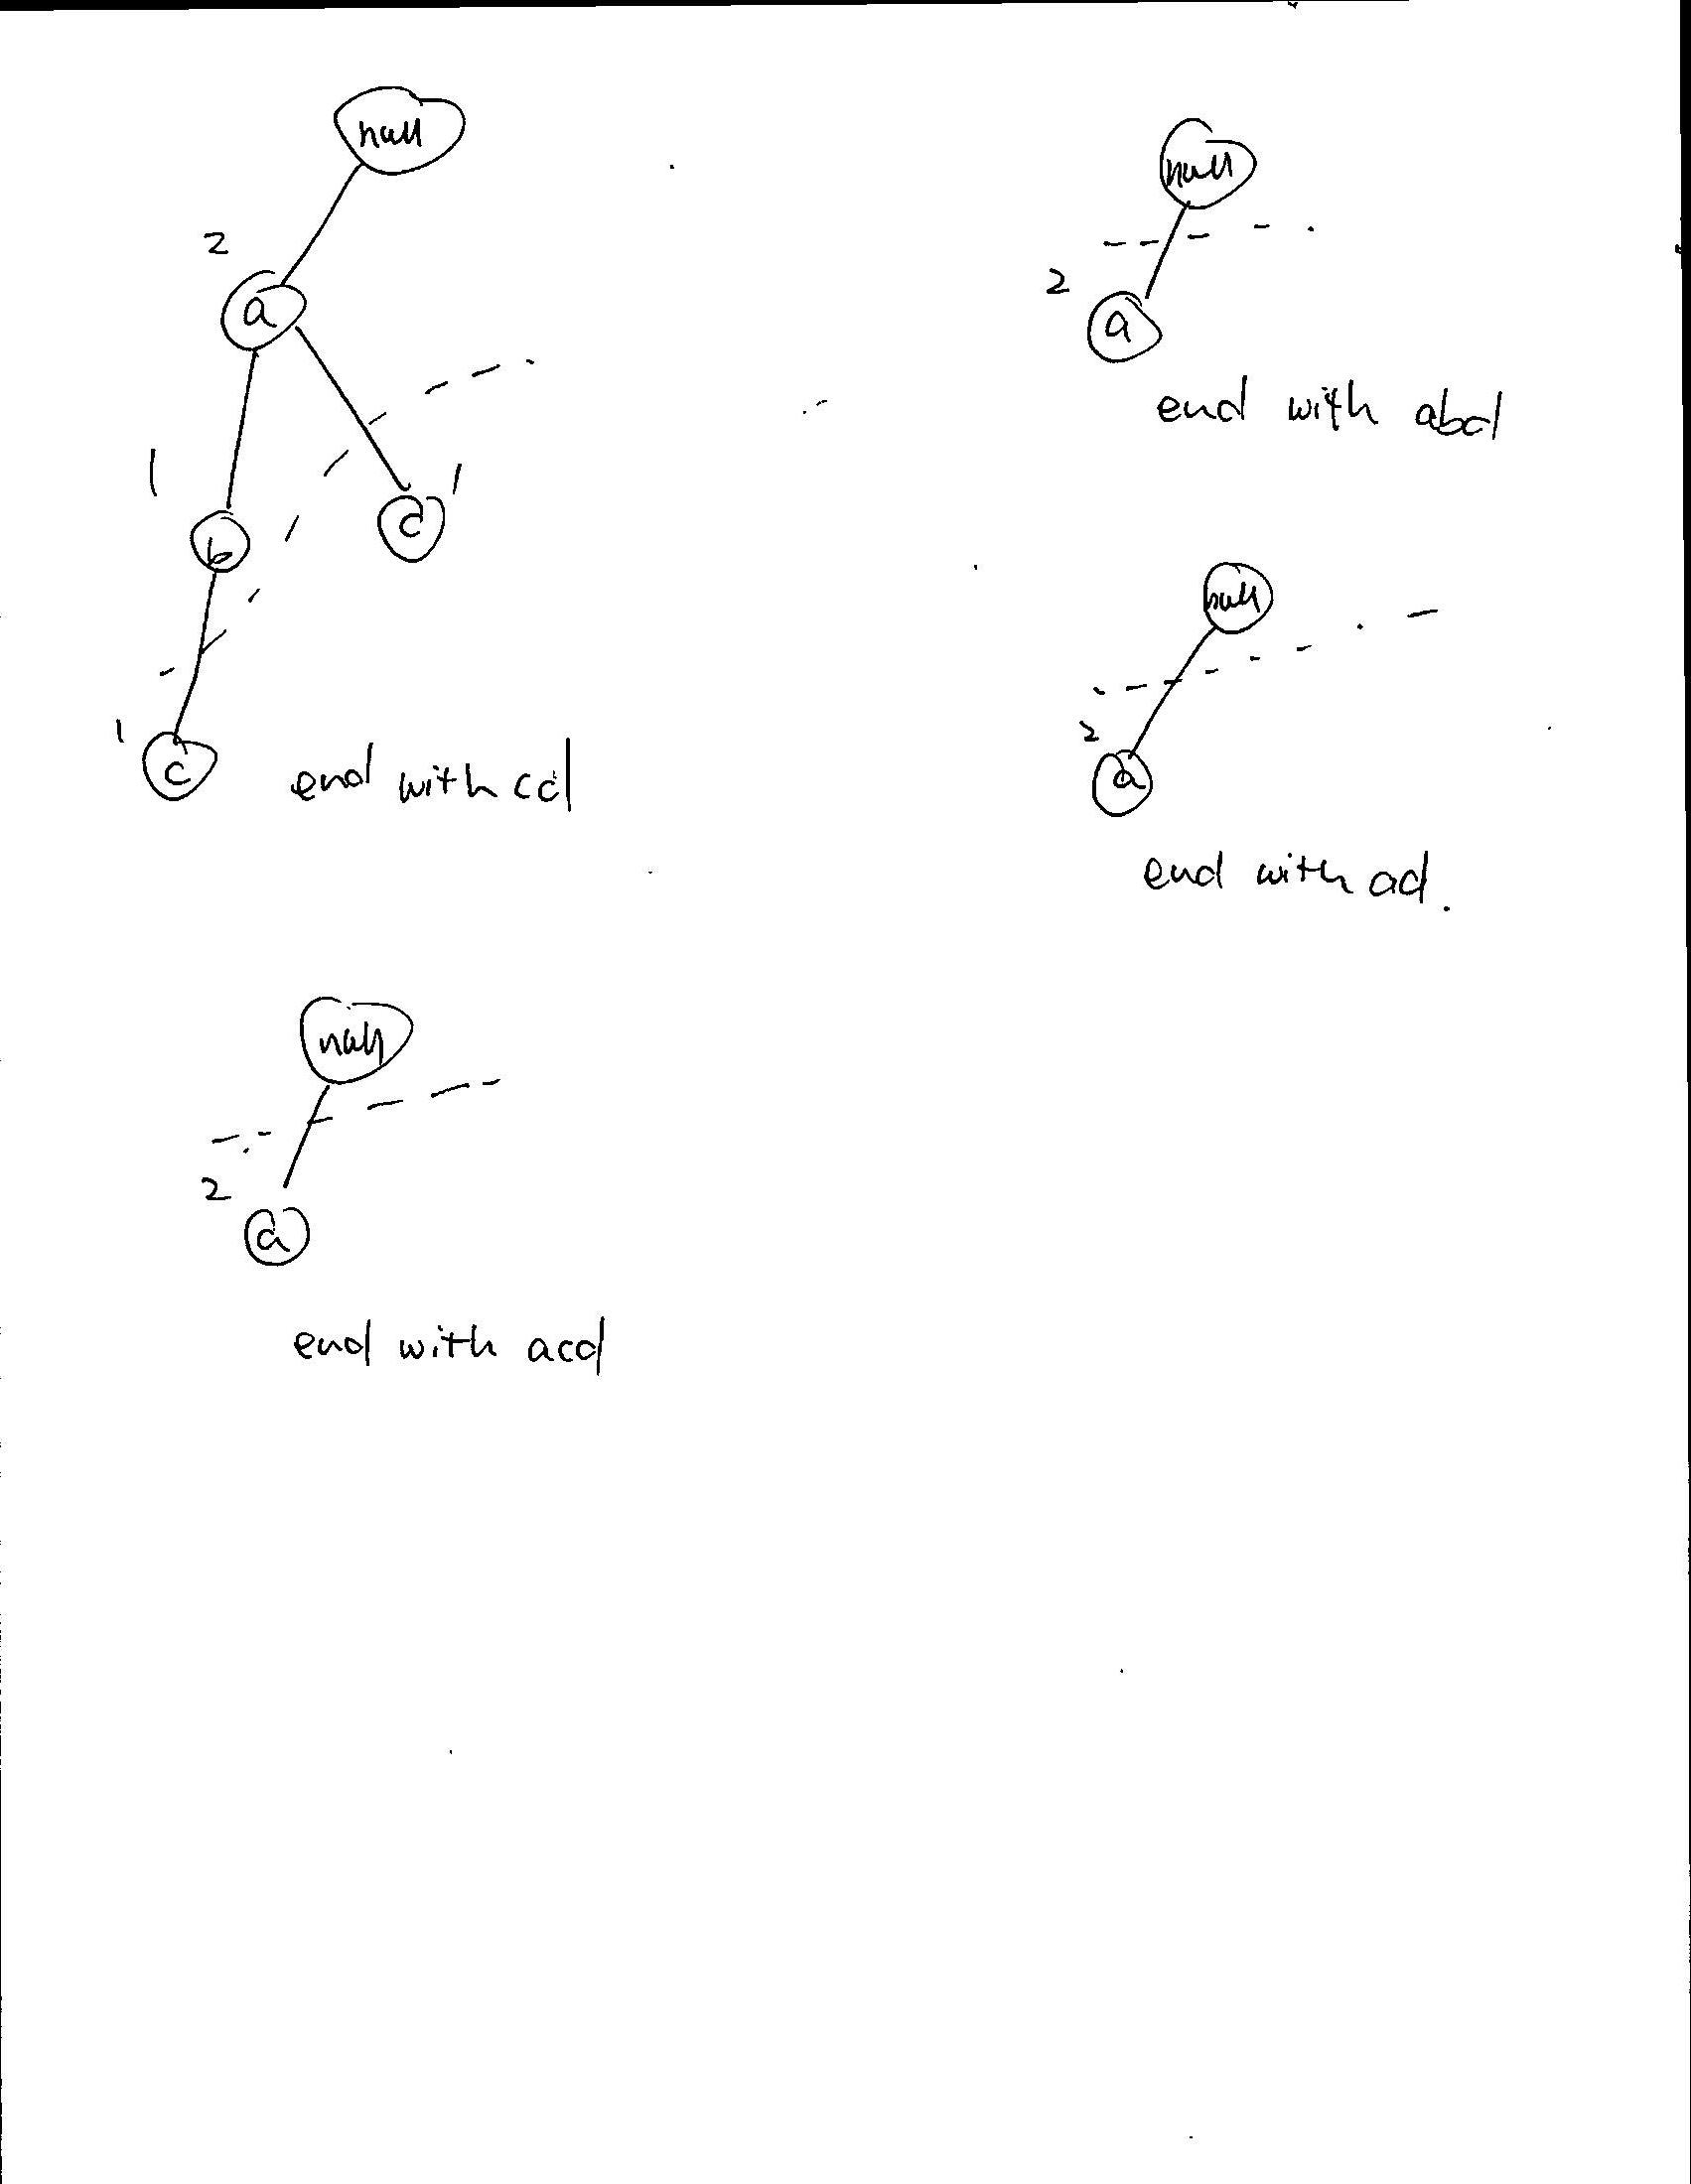 null
2
a
1
b
c
1
1
c
end with cd
null
2
a
end with abd
null
2
a
end with ad.
null
2
a
end with acd